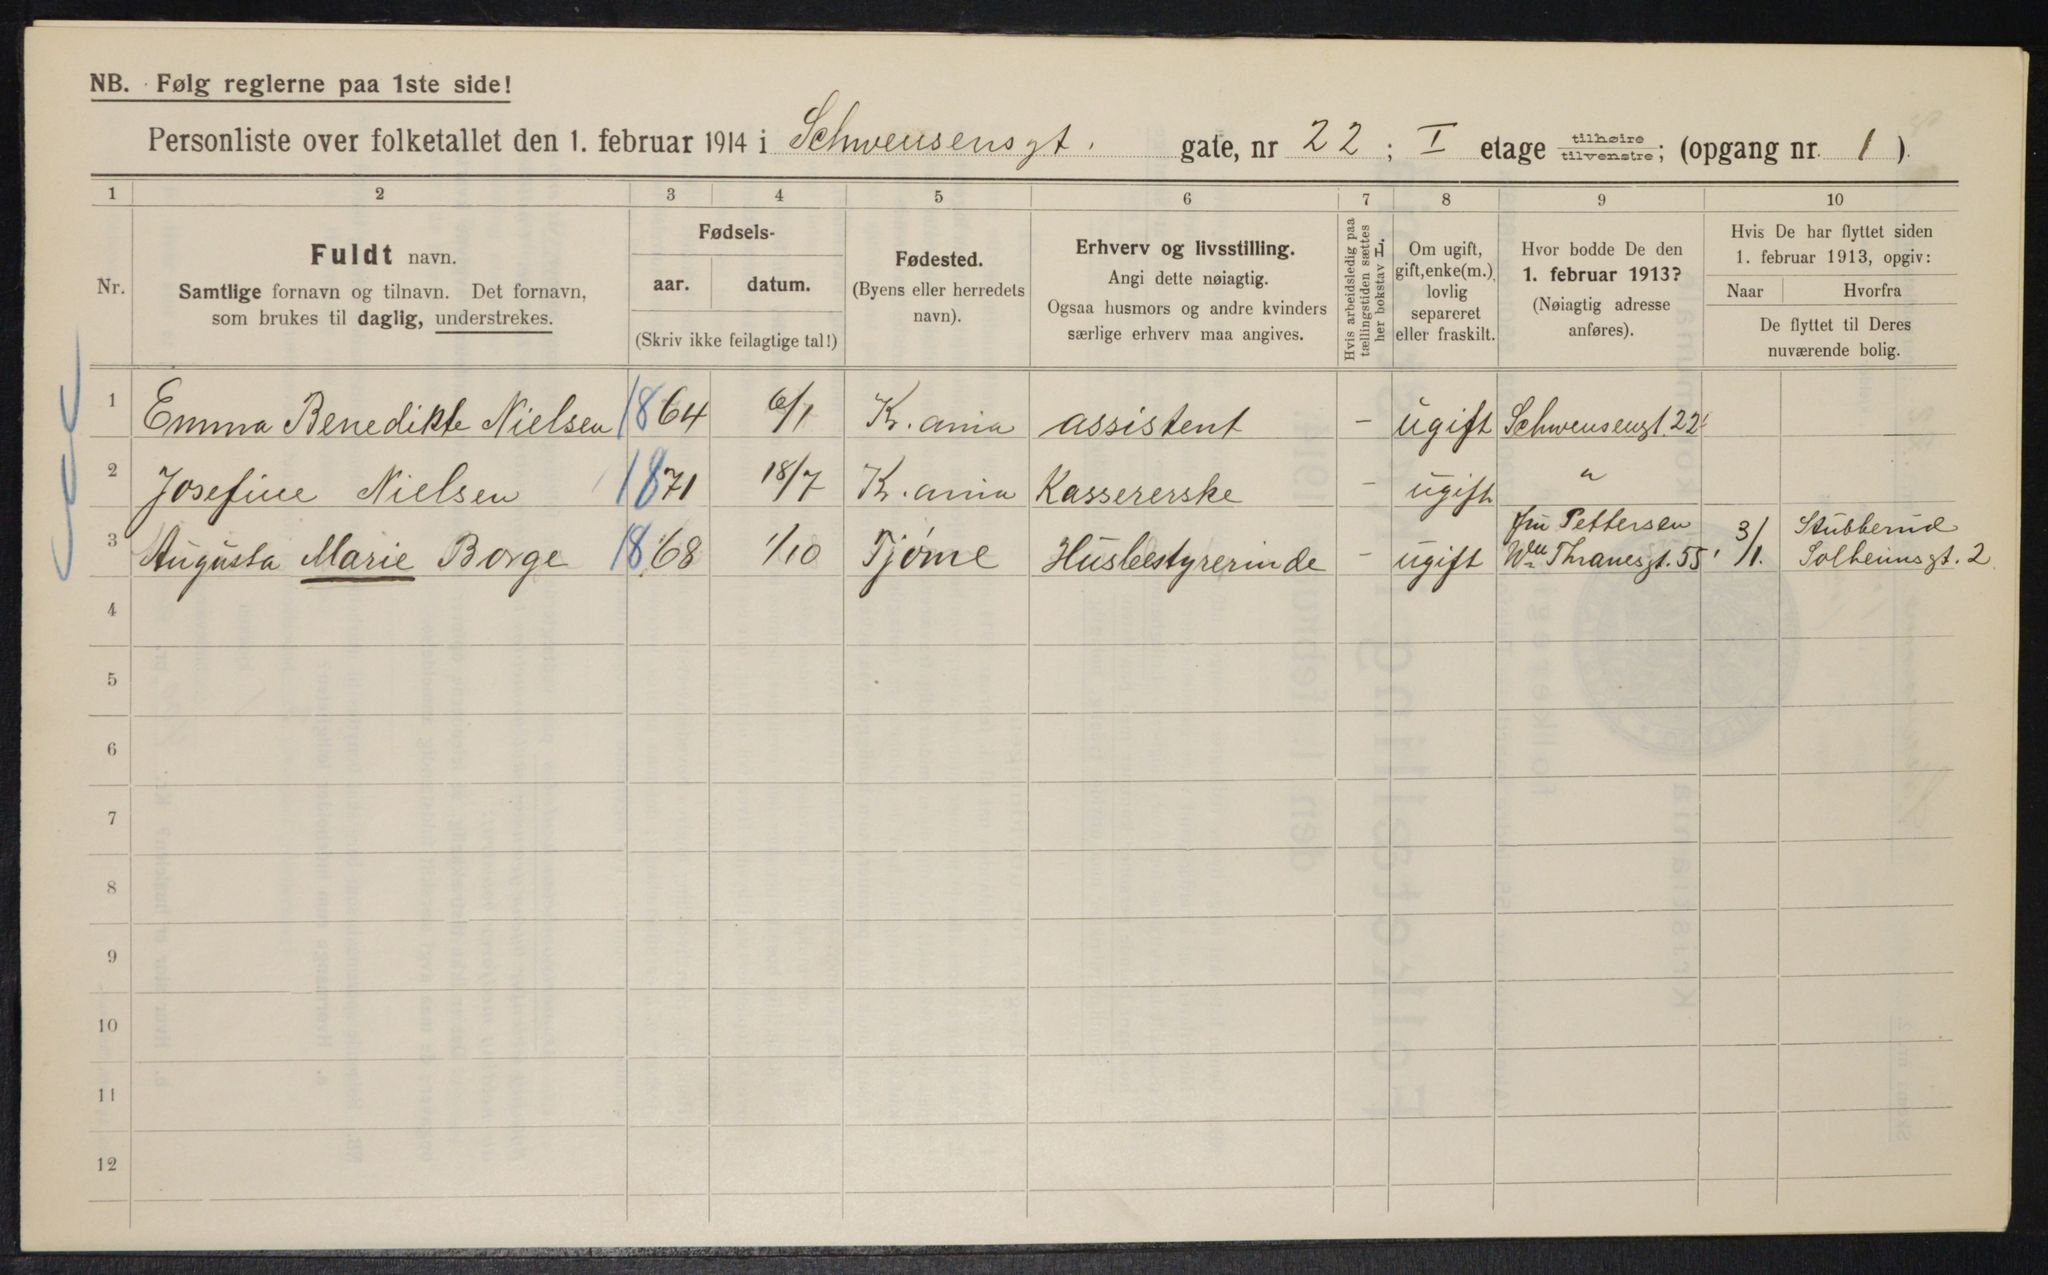 NB. Følg reglerne paa 1ste side!
Personliste over folketallet den 1. februar 1914 i Schwensensgt. gate, nr 22; I etage tilhøire tilvenstre; (opgang nr. 1).
1 2 3 4 5 6 7 8 9 10
Nr.
Fuldt navn.
Samtlige fornavn og tilnavn. Det fornavn,
som brukes til daglig, understrekes.
Fødsels-
aar. datum.
(Skriv ikke feilagtige tal!)
Fødested.
(Byens eller herredets
navn).
Erhverv og livsstilling.
Angi dette nøiagtig.
Ogsaa husmors og andre kvinders
særlige erhverv maa angives.
Hvis arbeidsledig paa
tællingstiden sættes
her bokstav L.
Om ugift,
gift, enke(m.),
lovlig
separeret
eller fraskilt.
Hvor bodde De den
1. februar 1913?
(Nøiagtig adresse
anføres).
Hvis De har flyttet siden
1. februar 1913, opgiv:
Naar Hvorfra
De flyttet til Deres
nuværende bolig.
1 Emma Benedikte Nielsen 1864 6/1 K.ania assistent - ugift Schwensensgt. 22
2 Josefine Nielsen 1871 18/7 K.ania Kassererske - ugift "
3 Augusta Marie Borge 1868 1/10 Tjøme Husbestyrerinde - ugift fru Pettersen
Wm Thranesgt. 55 3/1. Stubberud
Solheimsgt. 2
4
5
6
7
8
9
10
11
12